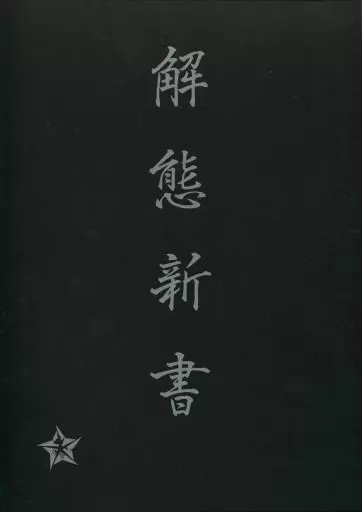 解態新書